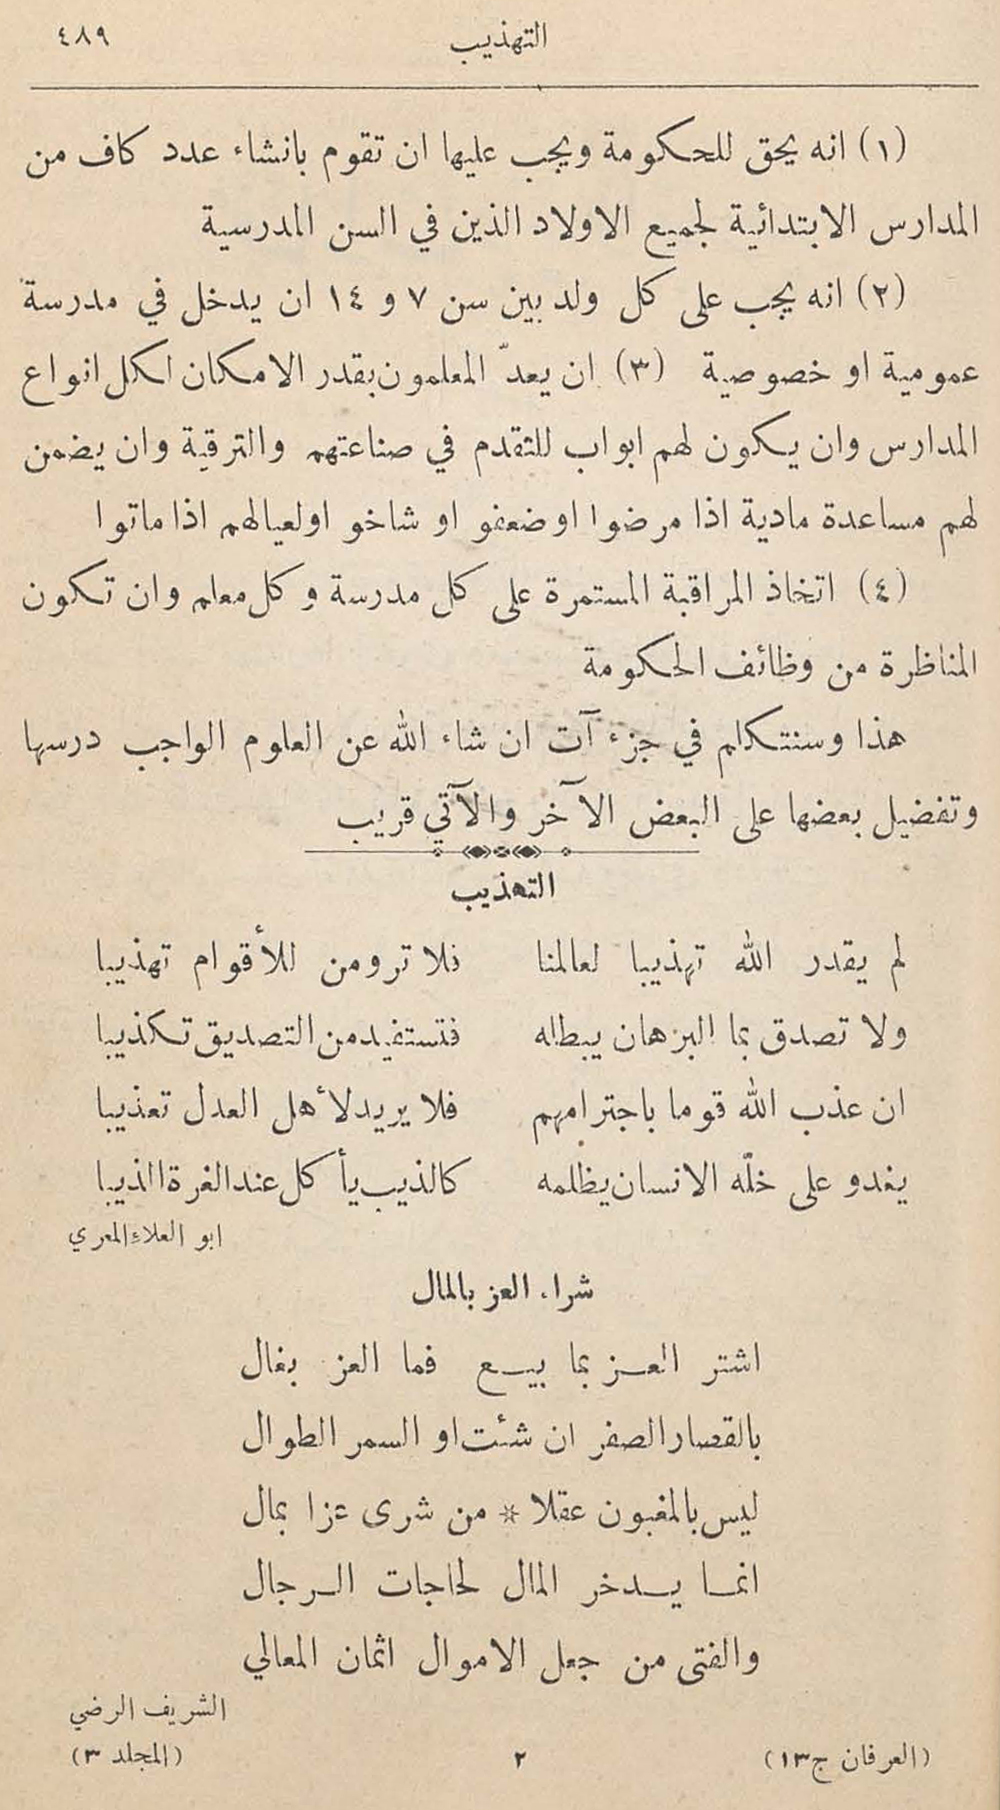 التهذيب ٤٨٩
(١) انه يحق للحكومة ويجب عليها ان تقوم بانشاء عدد كاف من
المدارس الابتدائية لجميع الاولاد الذين في السن المدرسية
(٢) انه يجب على كل ولد بين سن ٧ و ١٤ ان يدخل في مدرسة
عمومية او خصوصية (٣) ان يعدّ المعلمون بقدر الامكان لكل انواع
المدارس وان يكون لهم ابواب للتقدم في صناعتهم والترقية وان يضمن
لهم مساعدة مادية اذا مرضوا او ضعفو او شاخو او لعيالهم اذا ماتوا
(٤) اتخاذ المراقبة المستمرة على كل مدرسة وكل معلم وان تكون
المناظرة من وظائف الحكومة
هذا وسنتكلم في جزء آت ان شاء الله عن العلوم الواجب درسها
وتفضيل بعضها على البعض الآخر والآتي قريب
التهذيب
لم يقدر الله تهذيبا لعالمنا فلا ترومن للأقوام تهذيبا
ولا تصدق بما البرهان يبطله فتستفيد من التصديق تكذيبا
ان عذب الله قوما باجترامهم فلا يريد لأهل العدل تعذيبا
يغدو على خلّه الانسان يظلمه كالذيب يأكل عند الغرة الذيبا
ابو العلاء المعري
شراء العز بالمال
اشتر العز بما بيع فما العز بغال
بالقصار الصفر ان شئت او السمر الطوال
ليس بالمغبون عقلا * من شرى عزا بمال
انما يدخر المال لحاجات الرجال
والفتى من جعل الاموال اثمان المعالي
الشريف الرضي
(العرفان ج١٣) ٢ (المجلد ٣)